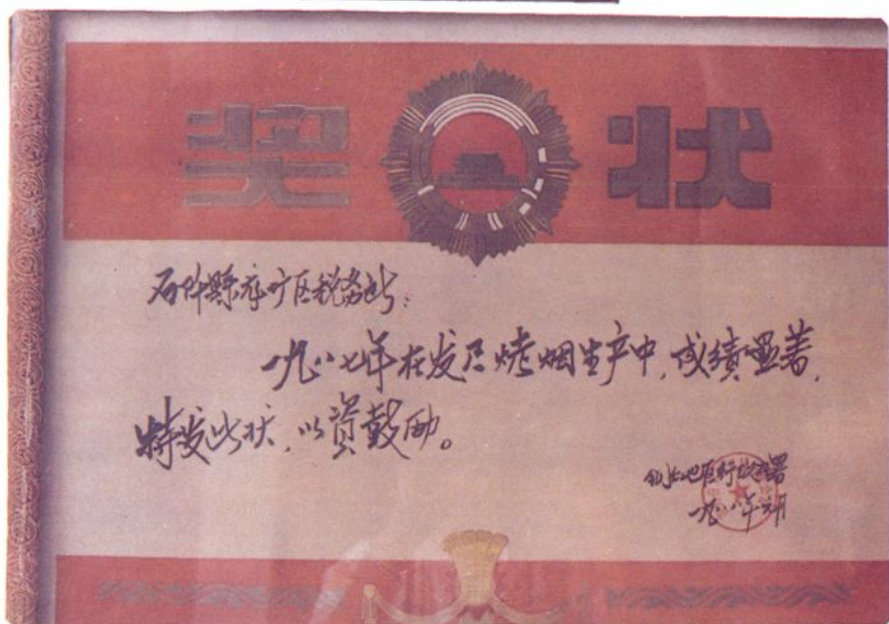 奖状
石阡县本矿区税务所：
一九八七年在发展烤烟生产中，成绩显著，
特发此状，以资鼓励。
铜仁地区行政公署
一九八八年元月